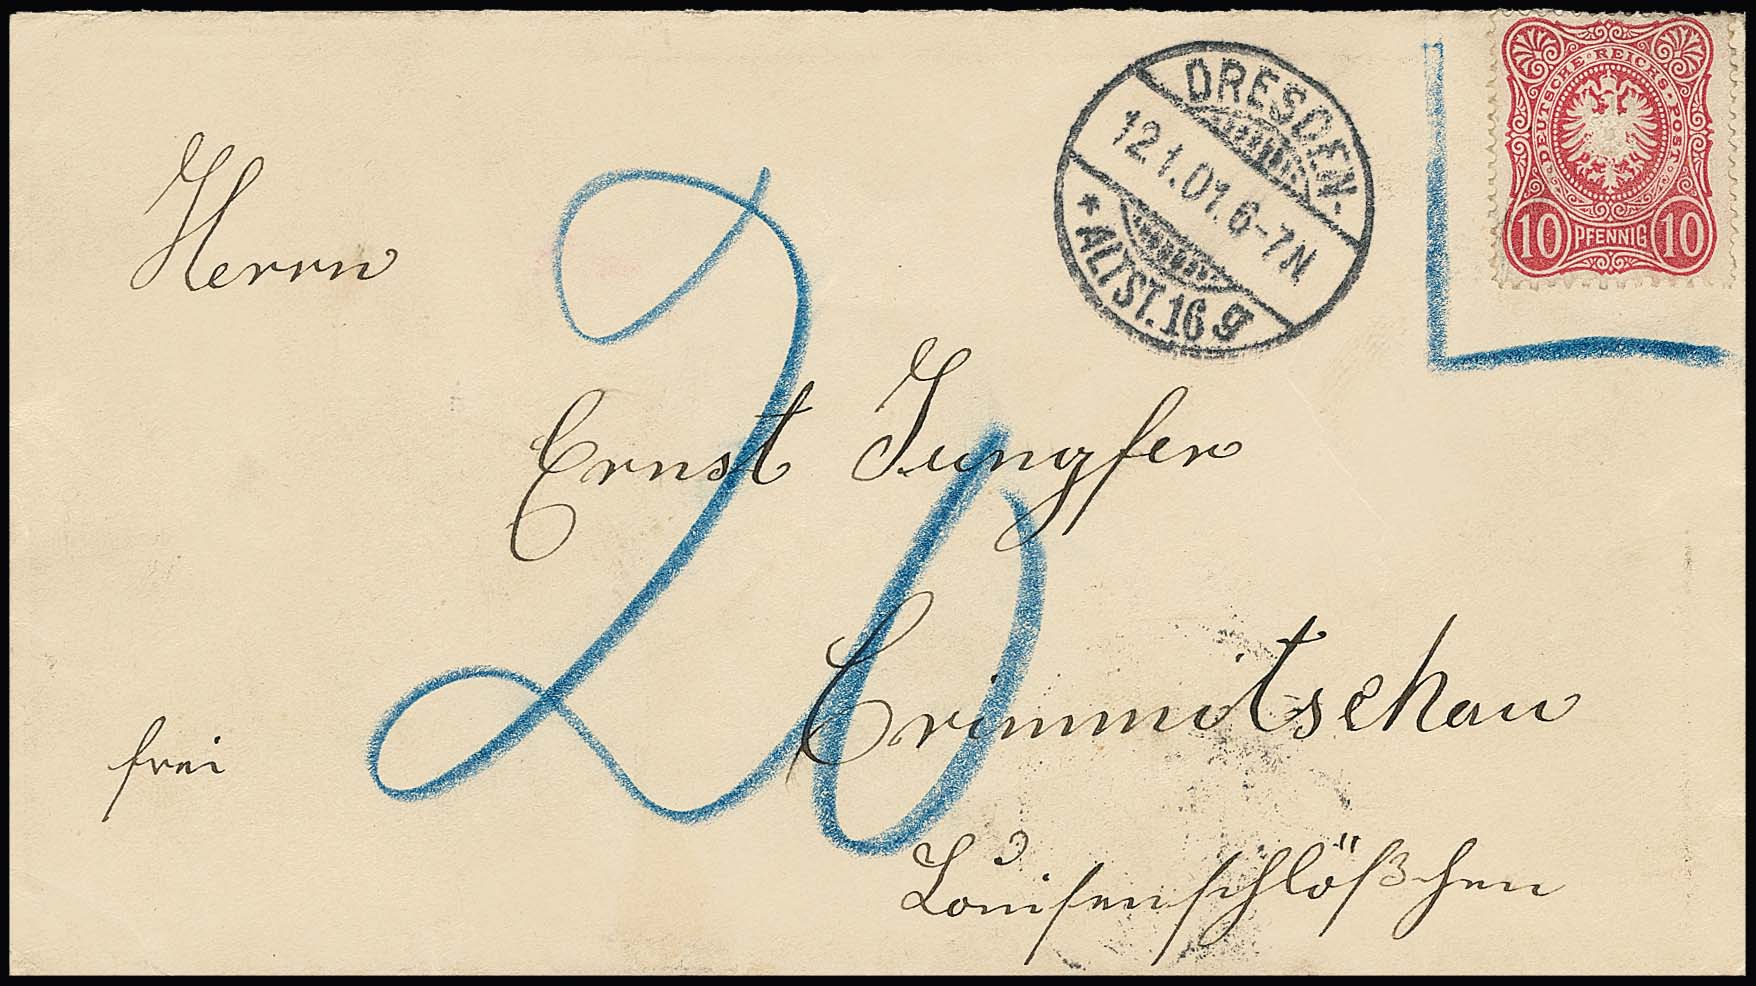 DEUTSCHE·REICHS·POST
10 PFENNIG 10
DRESDEN.
12.1.01.6-7N
* ALTST.16 g
Herrn
20
Ernst Jungfer
Crimmitschau
frei
Louisenschlößchen